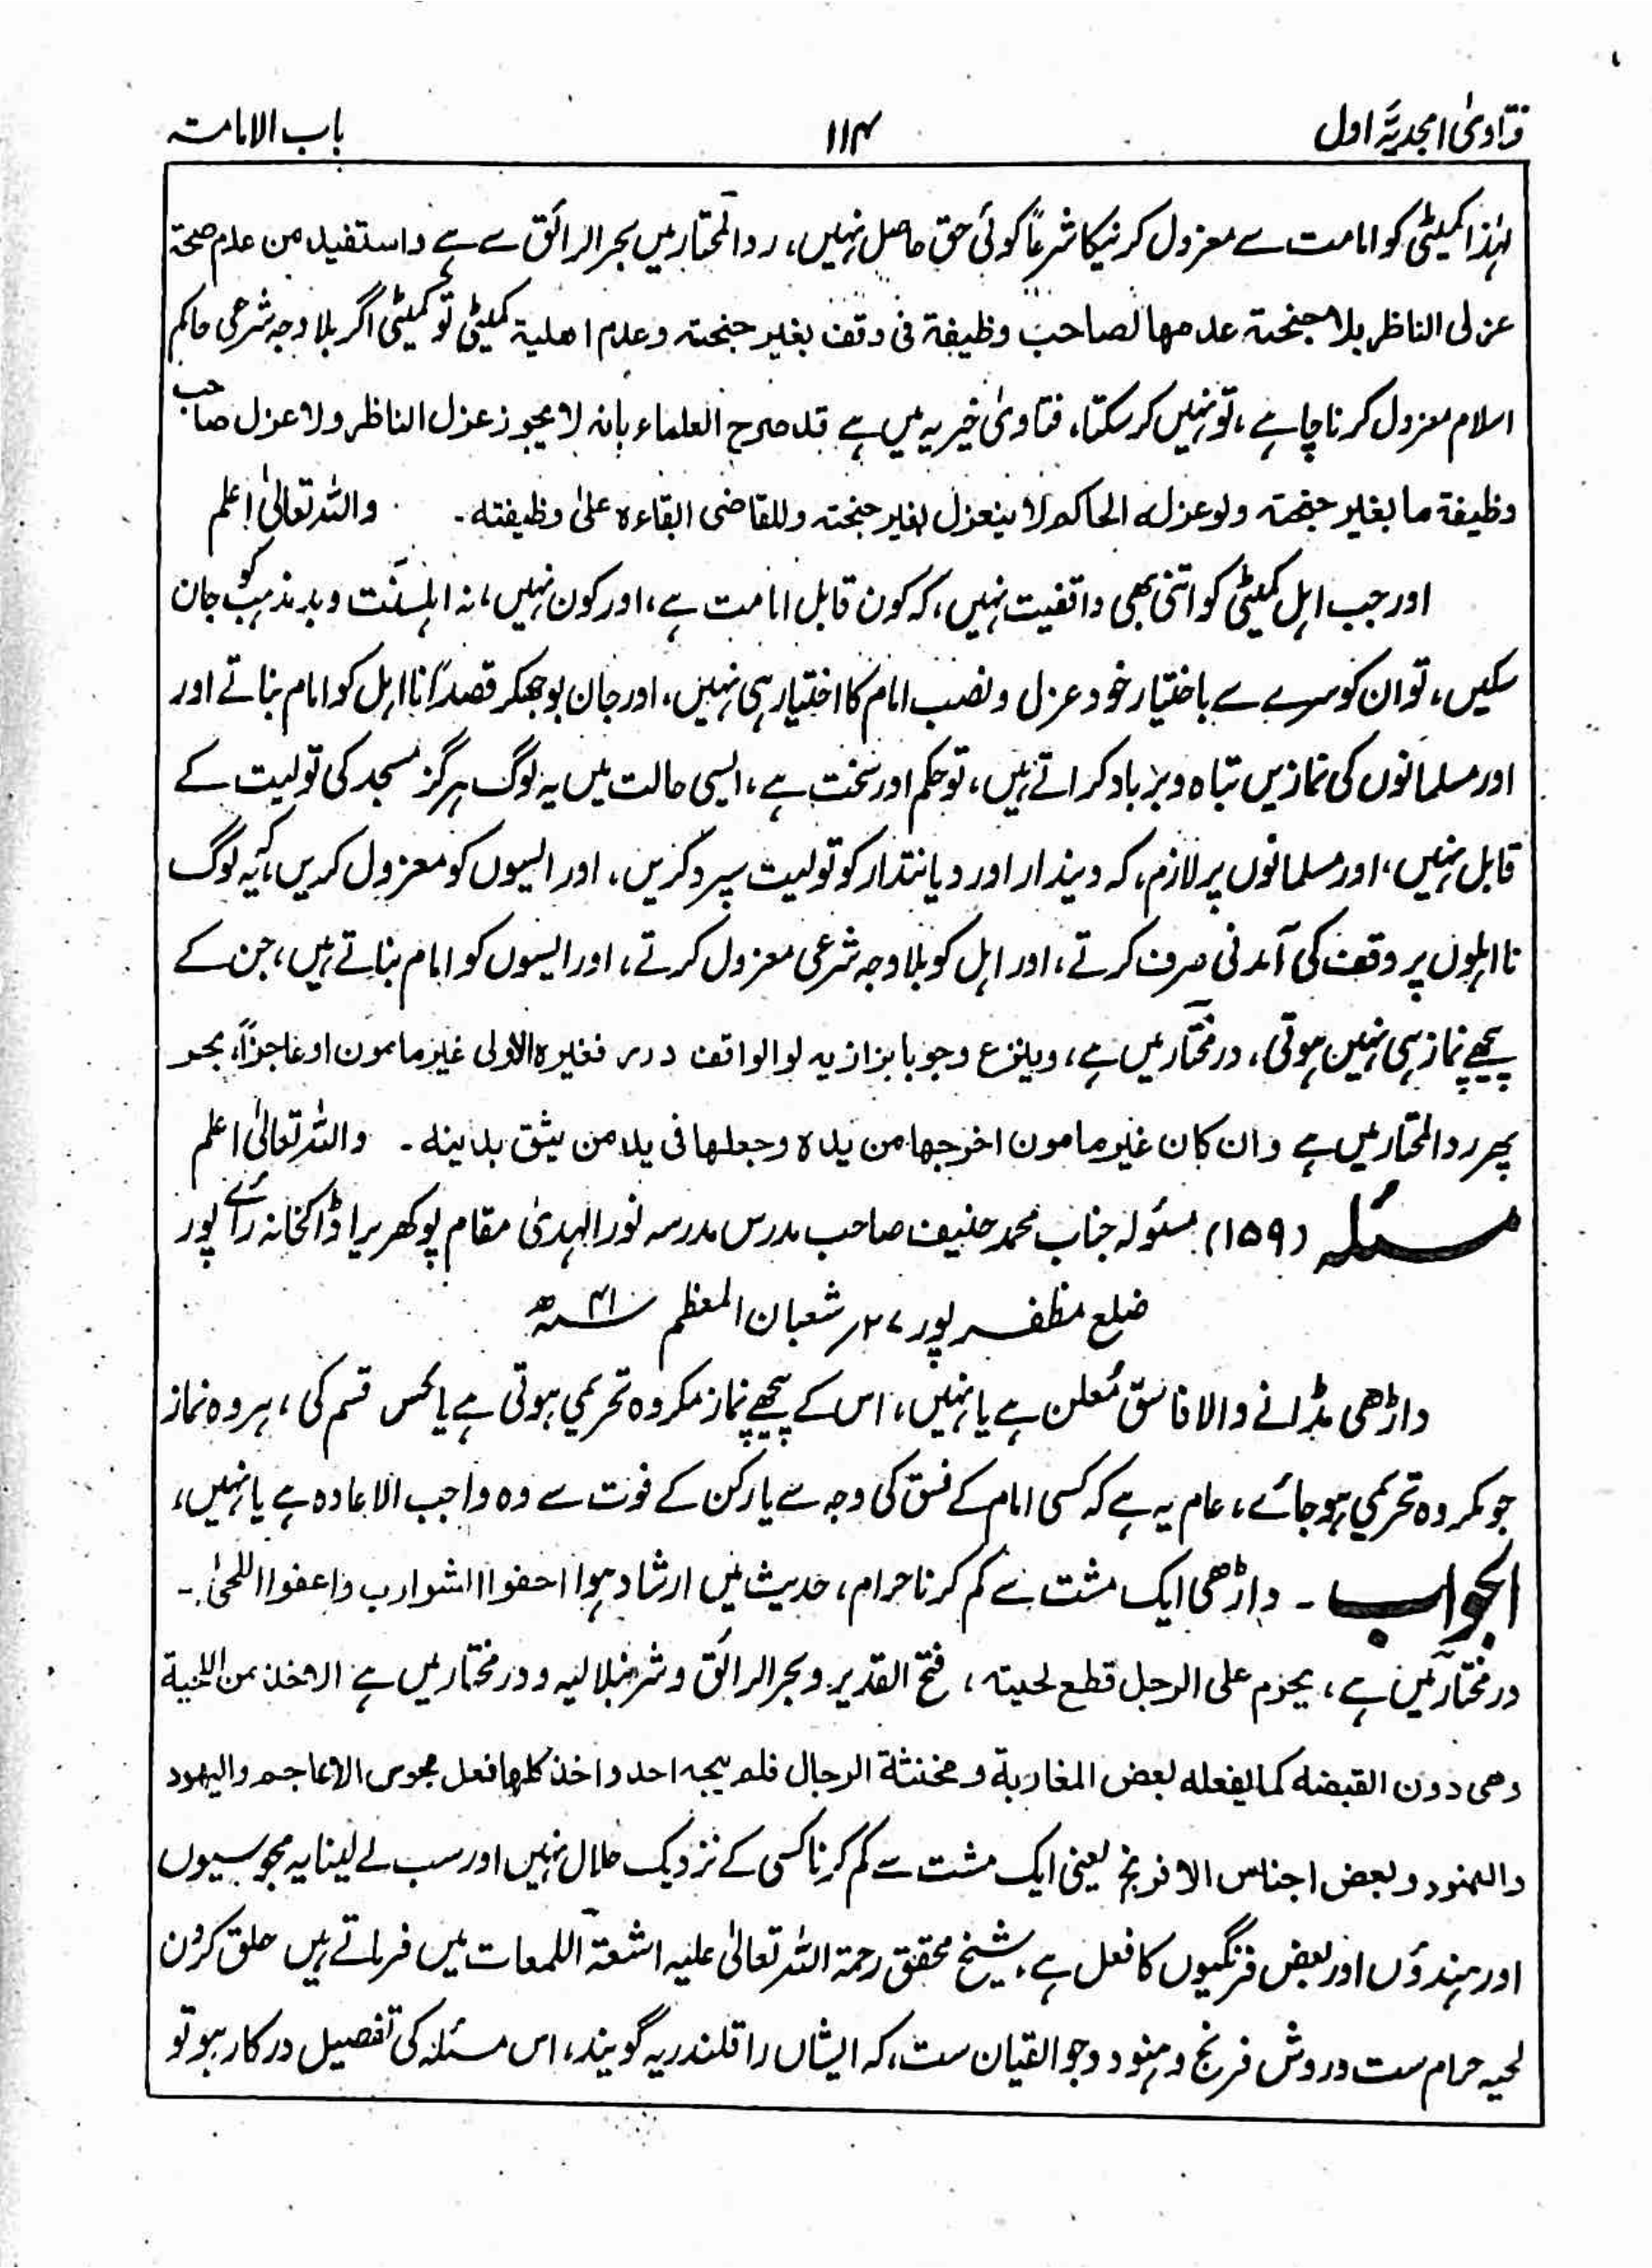 فتاویٰ امجدیہ اول ۱۱۴ باب الامامت
لہٰذا کمیٹی کو امامت سے معزول کرنیکا شرعاً کوئی حق حاصل نہیں، ردالمحتار میں بحرالرائق سے ہے واستفید من عدم صحۃ
عزل الناظر بلا جنحۃ عدمها لصاحب وظیفۃ فی وقف بغیر جنحتہ وعدم اهلیۃ کمیٹی تو کمیٹی اگر بلا وجہ شرعی حاکم
اسلام معزول کرنا چاہے، تو نہیں کرسکتا، فتاویٰ خیریہ میں ہے قد صرح العلماء بانہ لا یجوز عزل الناظر ولا عزل صاحب
وظیفۃ ما بغیر جنحتہ ولو عزلہ الحاکم لا ینعزل بغیر جنحتہ وللقاضی ابقاءہ علیٰ وظیفتہ۔ واللہ تعالیٰ اعلم
اور جب اہل کمیٹی کو اتنی بھی واقفیت نہیں، کہ کون قابل امامت ہے، اور کون نہیں، نہ اہلسنّت و بدمذہب کو جان
سکیں، تو ان کو سرے سے باختیار خود عزل و نصب امام کا اختیار ہی نہیں، اور جان بوجھکر قصداً نااہل کو امام بناتے اور
اور مسلمانوں کی نمازیں تباہ و برباد کراتے ہیں، تو حکم اور سخت ہے، ایسی حالت میں یہ لوگ ہرگز مسجد کی تولیت کے
قابل نہیں، اور مسلمانوں پر لازم، کہ دیندار اور دیانتدار کو تولیت سپرد کریں، اور ایسوں کو معزول کریں، کہ یہ لوگ
نااہلوں پر وقف کی آمدنی صرف کرتے، اور اہل کو بلا وجہ شرعی معزول کرتے، اور ایسوں کو امام بناتے ہیں، جن کے
پیچھے نماز ہی نہیں ہوتی، درمختار میں ہے، وینزع وجوبا بزازیہ لو الواقف درر فغیرہ الاولی غیر مامون او عاجزاً، بحر
پھر ردالمحتار میں ہے وان کان غیر مامون اخرجها من یدہ وجعلها فی ید من یثق بدینہ۔ واللہ تعالیٰ اعلم
مسئلہ (۱۵۹) مسئولہ جناب محمد حنیف صاحب مدرس مدرسہ نورالہدیٰ مقام پوکھریرا ڈاکخانہ رائے پور
ضلع مظفرپور ۲۷؍ شعبان المعظم ۴۱ھ
داڑھی مڈانے والا فاسق مُعلن ہے یا نہیں، اس کے پیچھے نماز مکروہ تحریمی ہوتی ہے یا کس قسم کی، ہر وہ نماز
جو مکروہ تحریمی ہوجائے، عام یہ ہے کہ کسی امام کے فسق کی وجہ سے یا رکن کے فوت سے وہ واجب الاعادہ ہے یا نہیں،
الجواب۔ داڑھی ایک مشت سے کم کرنا حرام، حدیث میں ارشاد ہوا احفوا الشوارب واعفوا اللحیٰ۔
درمختار میں ہے، یحرم علی الرجل قطع لحیتہ، فتح القدیر و بحرالرائق و شرنبلالیہ و درمختار میں ہے الاخذ من اللحیۃ
وهی دون القبضہ کما یفعلہ بعض المغاربۃ ومخنثۃ الرجال فلم یبحہ احد واخذ کلها فعل مجوس الاعاجم والیهود
والهنود وبعض اجناس الافرنج یعنی ایک مشت سے کم کرنا کسی کے نزدیک حلال نہیں اور سب لے لینا یہ مجوسیوں
اور ہندوؤں اور بعض فرنگیوں کا فعل ہے، شیخ محقق رحمۃ اللہ تعالیٰ علیہ اشعۃ اللمعات میں فرماتے ہیں حلق کردن
لحیہ حرام ست و روش فرنج و ہنود و جوالقیان ست، کہ ایشاں را قلندریہ گویند، اس مسئلہ کی تفصیل درکار ہو تو